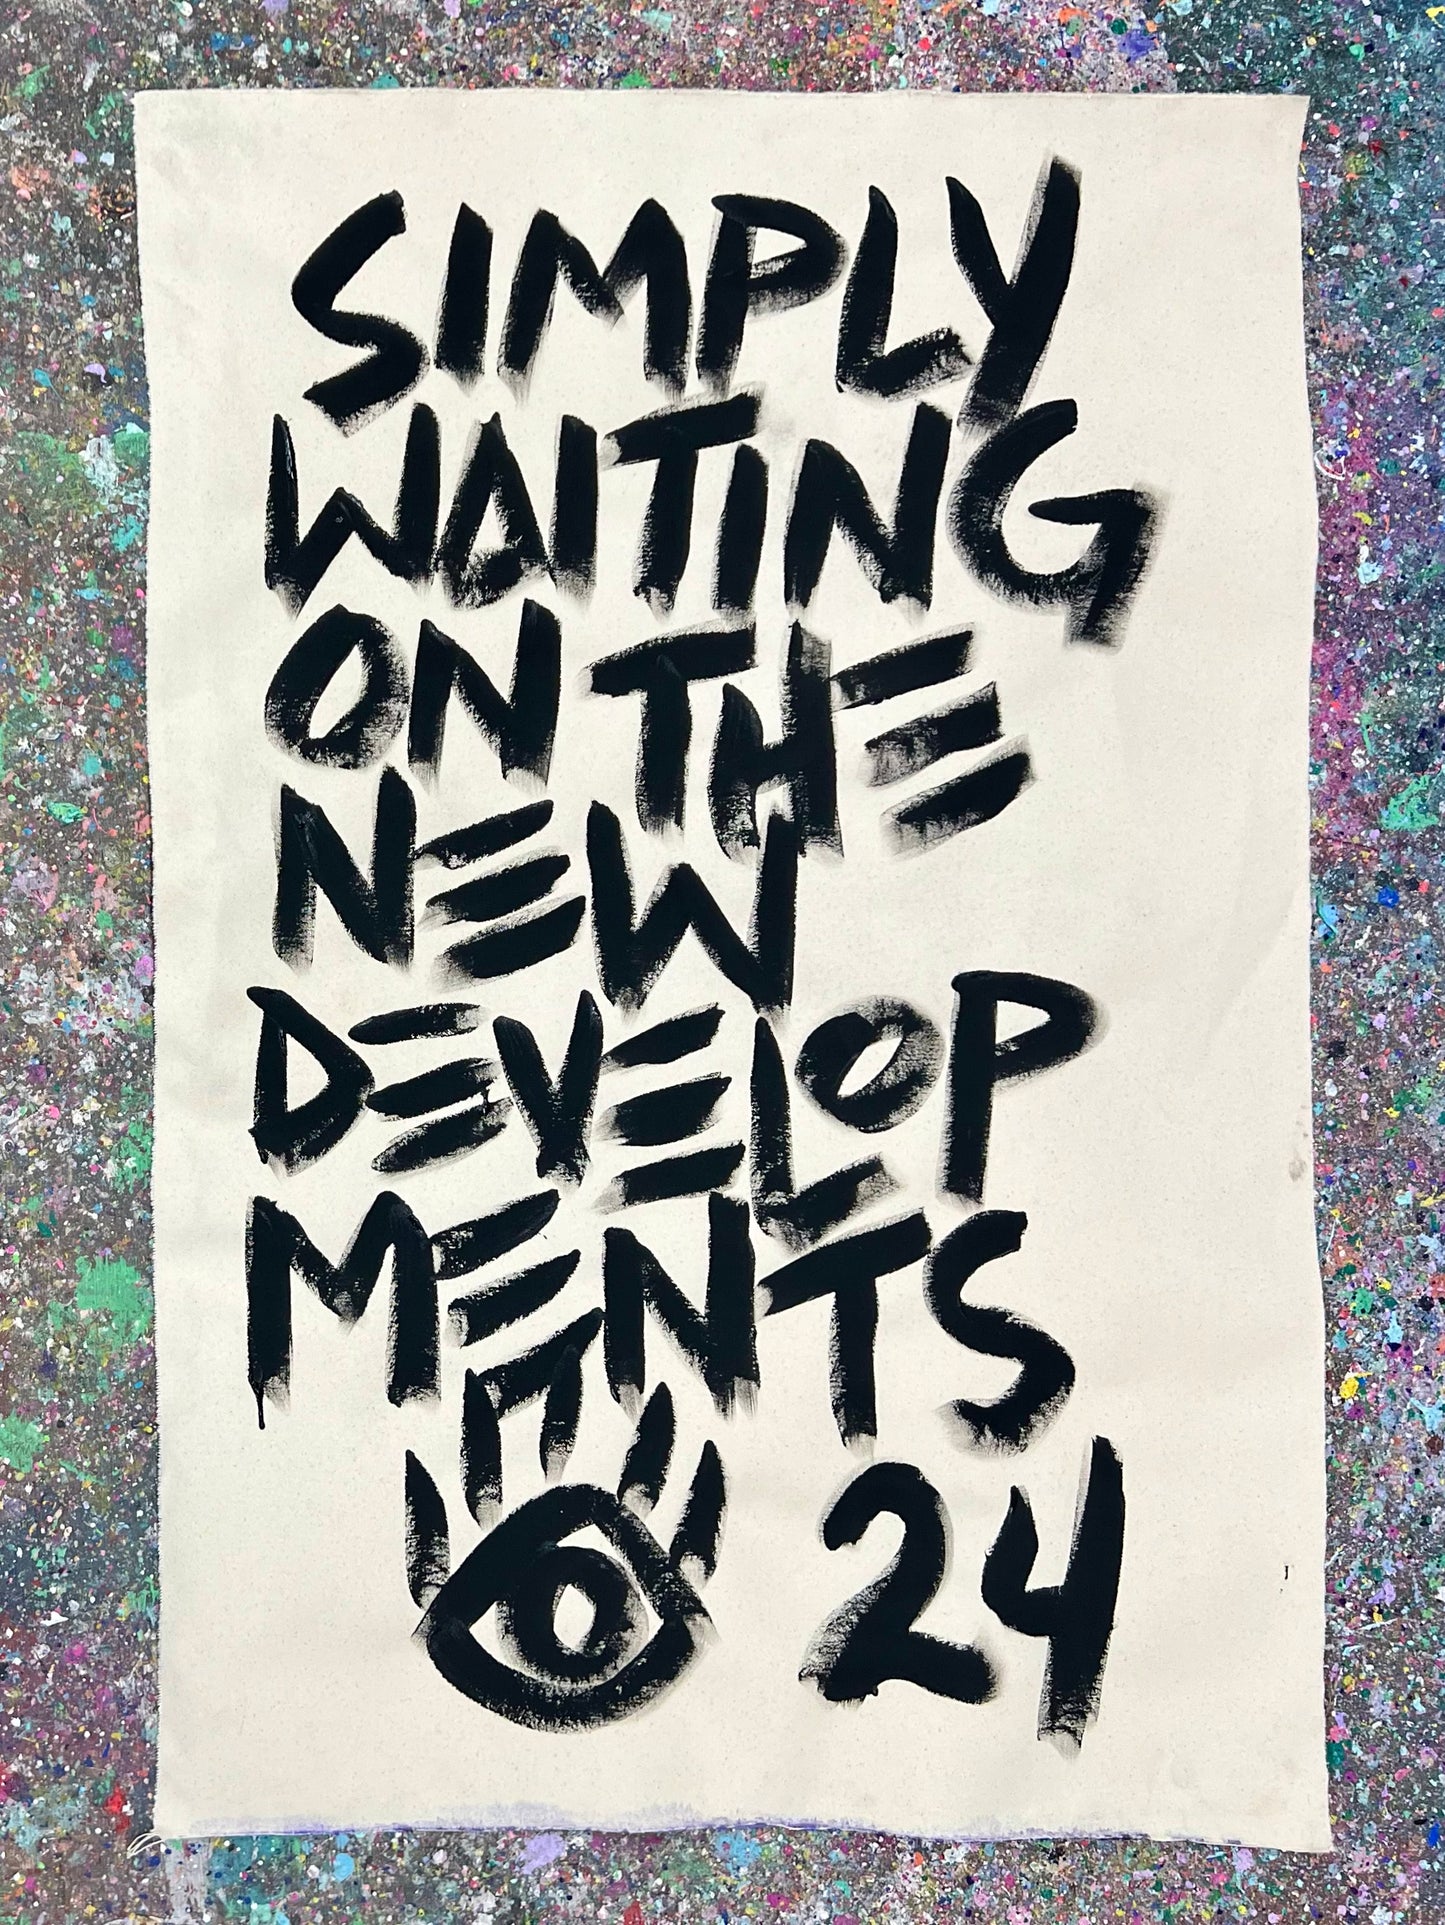 SIMPLY
WAITING
ON THE
NEW
DEVELOP
MENTS
24